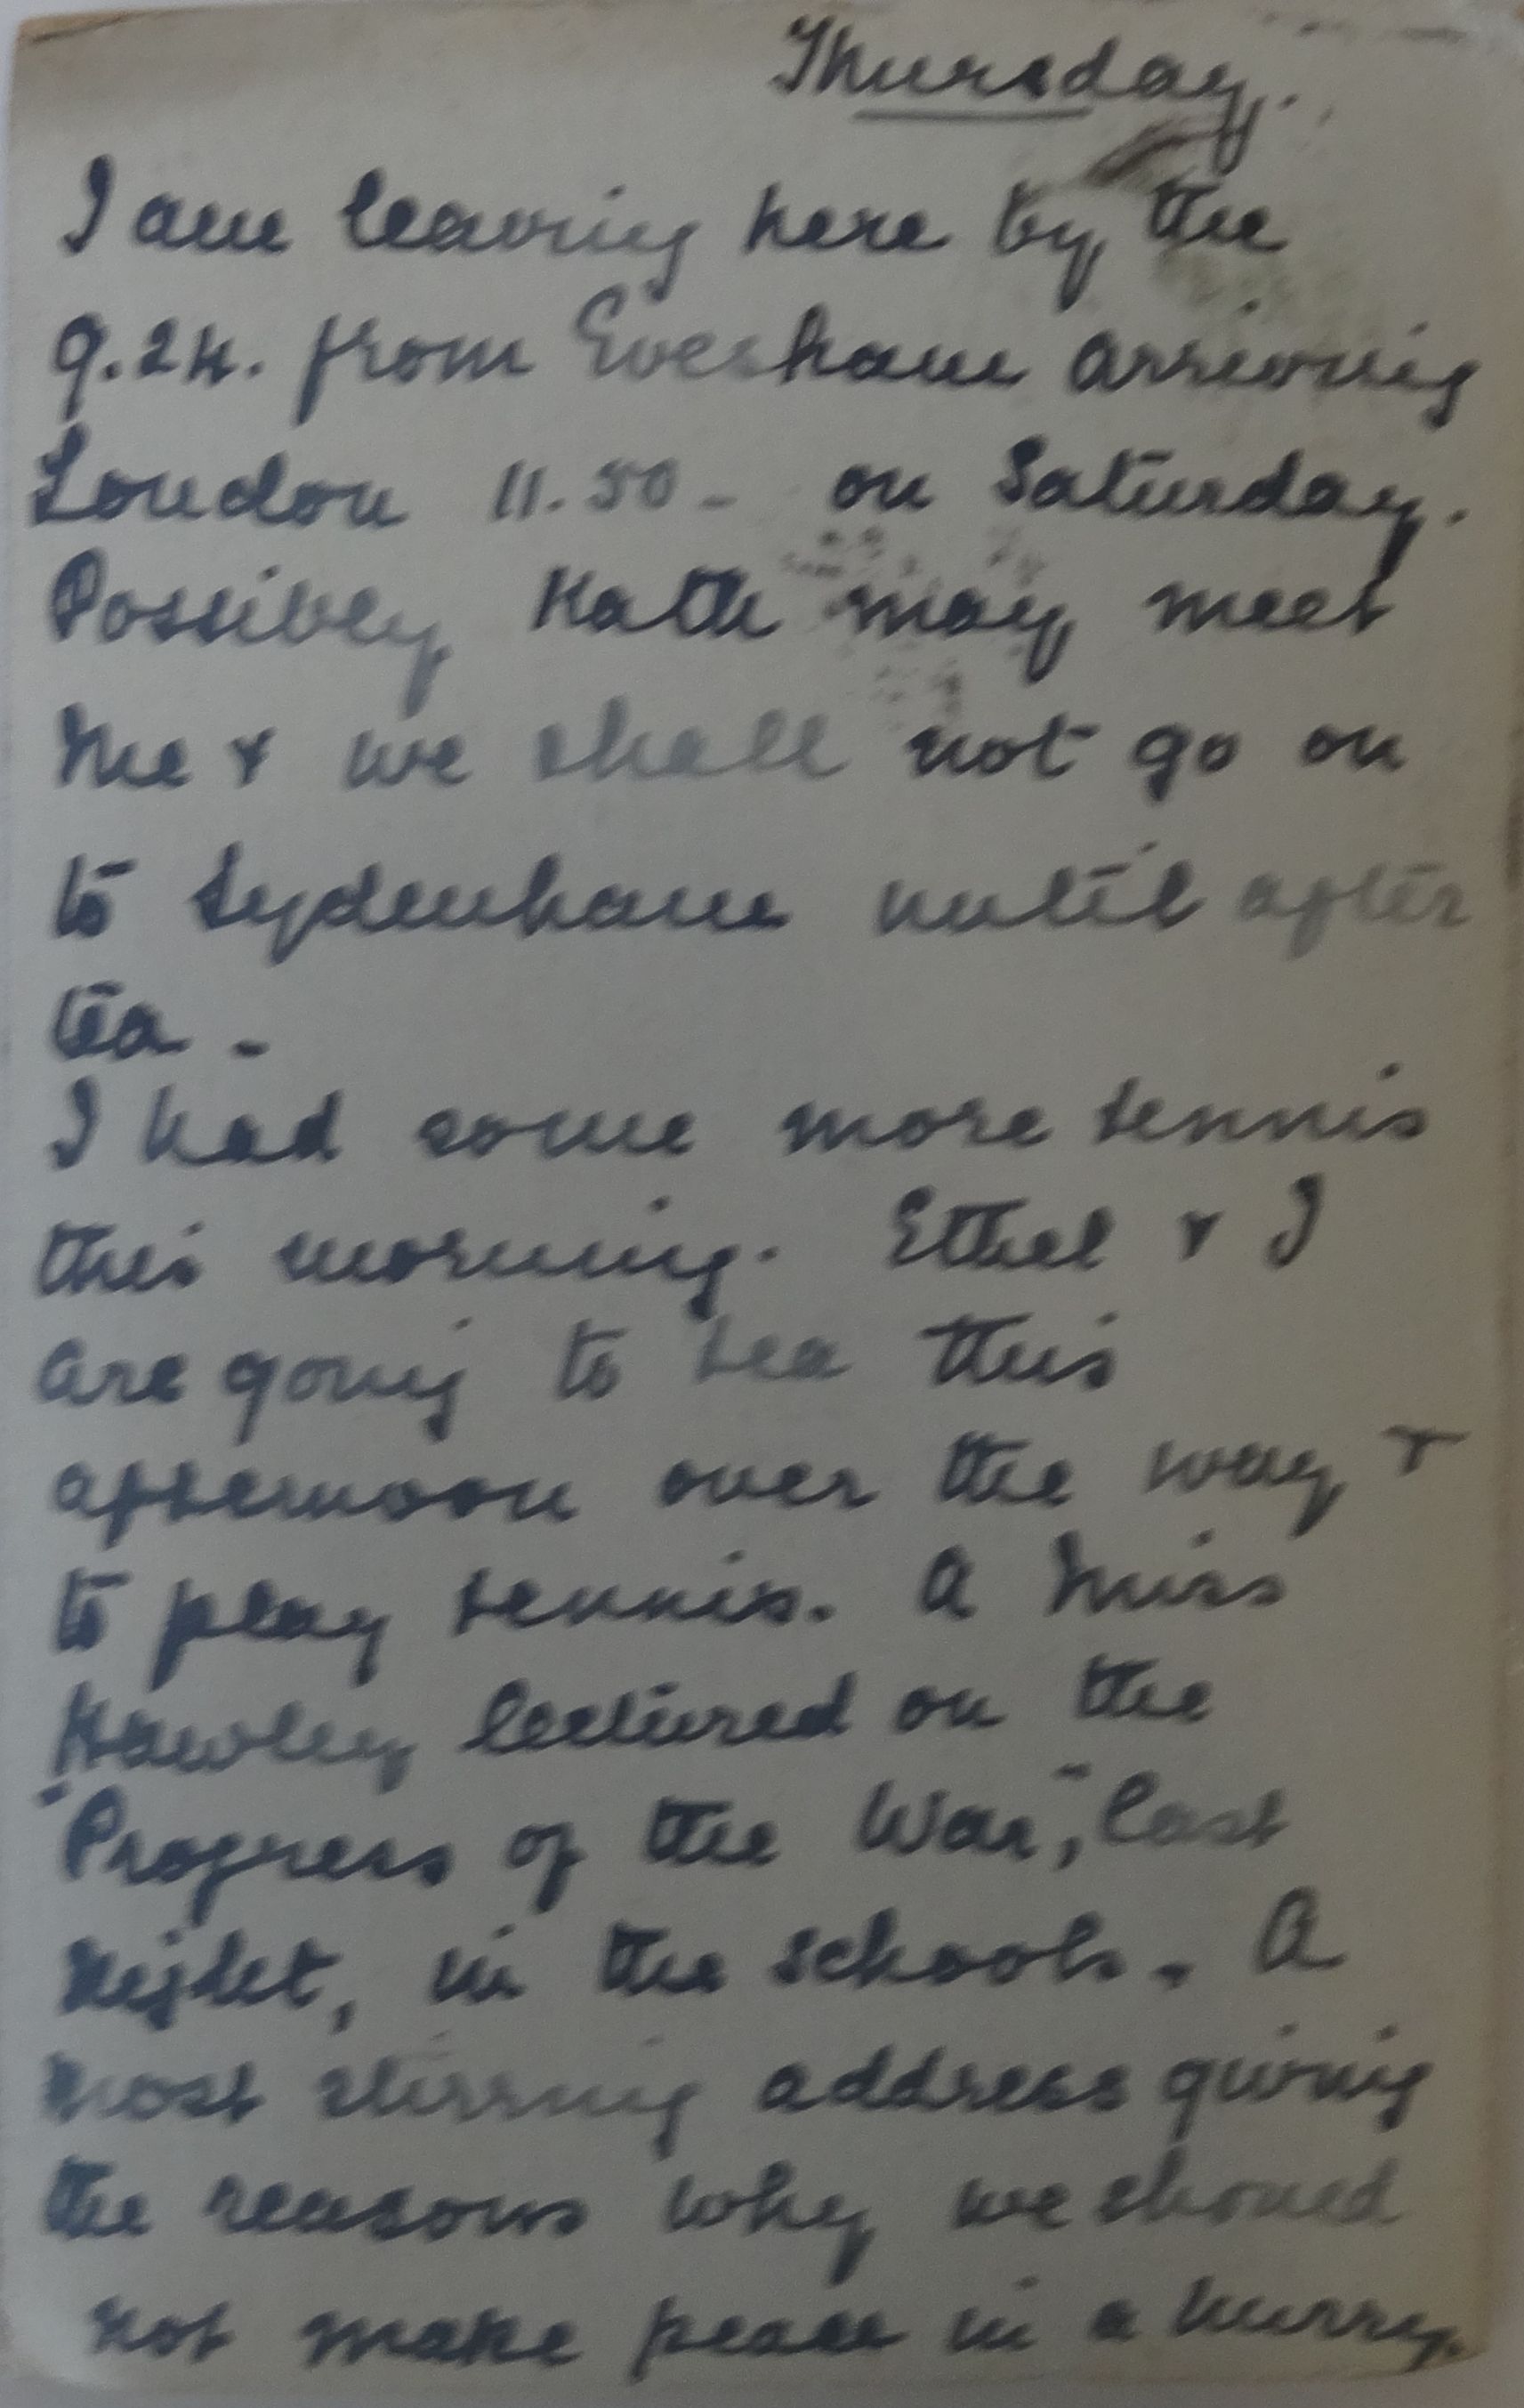 Thursday.
I am leaving here by the
9.24. from Evesham arriving
London 11.50 - on Saturday.
Possibly Kath may meet
me & we shall not go on
to Sydenham until after
tea -
I had some more tennis
this morning. Ethel & I
are going to tea this
afternoon over the way &
to play tennis. A Miss
Hawley lectured on the
"Progress of the War", last
night, in the schools. A
most stirring address giving
the reasons why we should
not make peace in a hurry.